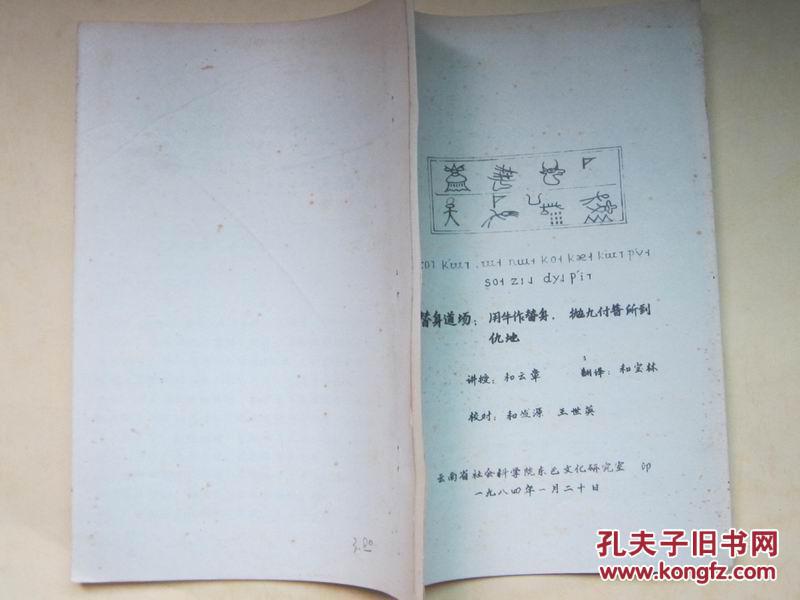 k'ɯ˥ .ɯ˧ nɯ˧ ko˧ kæ˧ k'ɯ˥ p'v˧
ʂo˧ zɿ˩ dy˩ p'i˥
替身道场：用牛作替身，抛九付替所到
仇地
讲授：和云章 翻译：和宝林
校对：和发源 王世英
云南省社会科学院东巴文化研究室 印
一九八四年一月二十日
3.80
孔夫子旧书网
www.kongfz.com